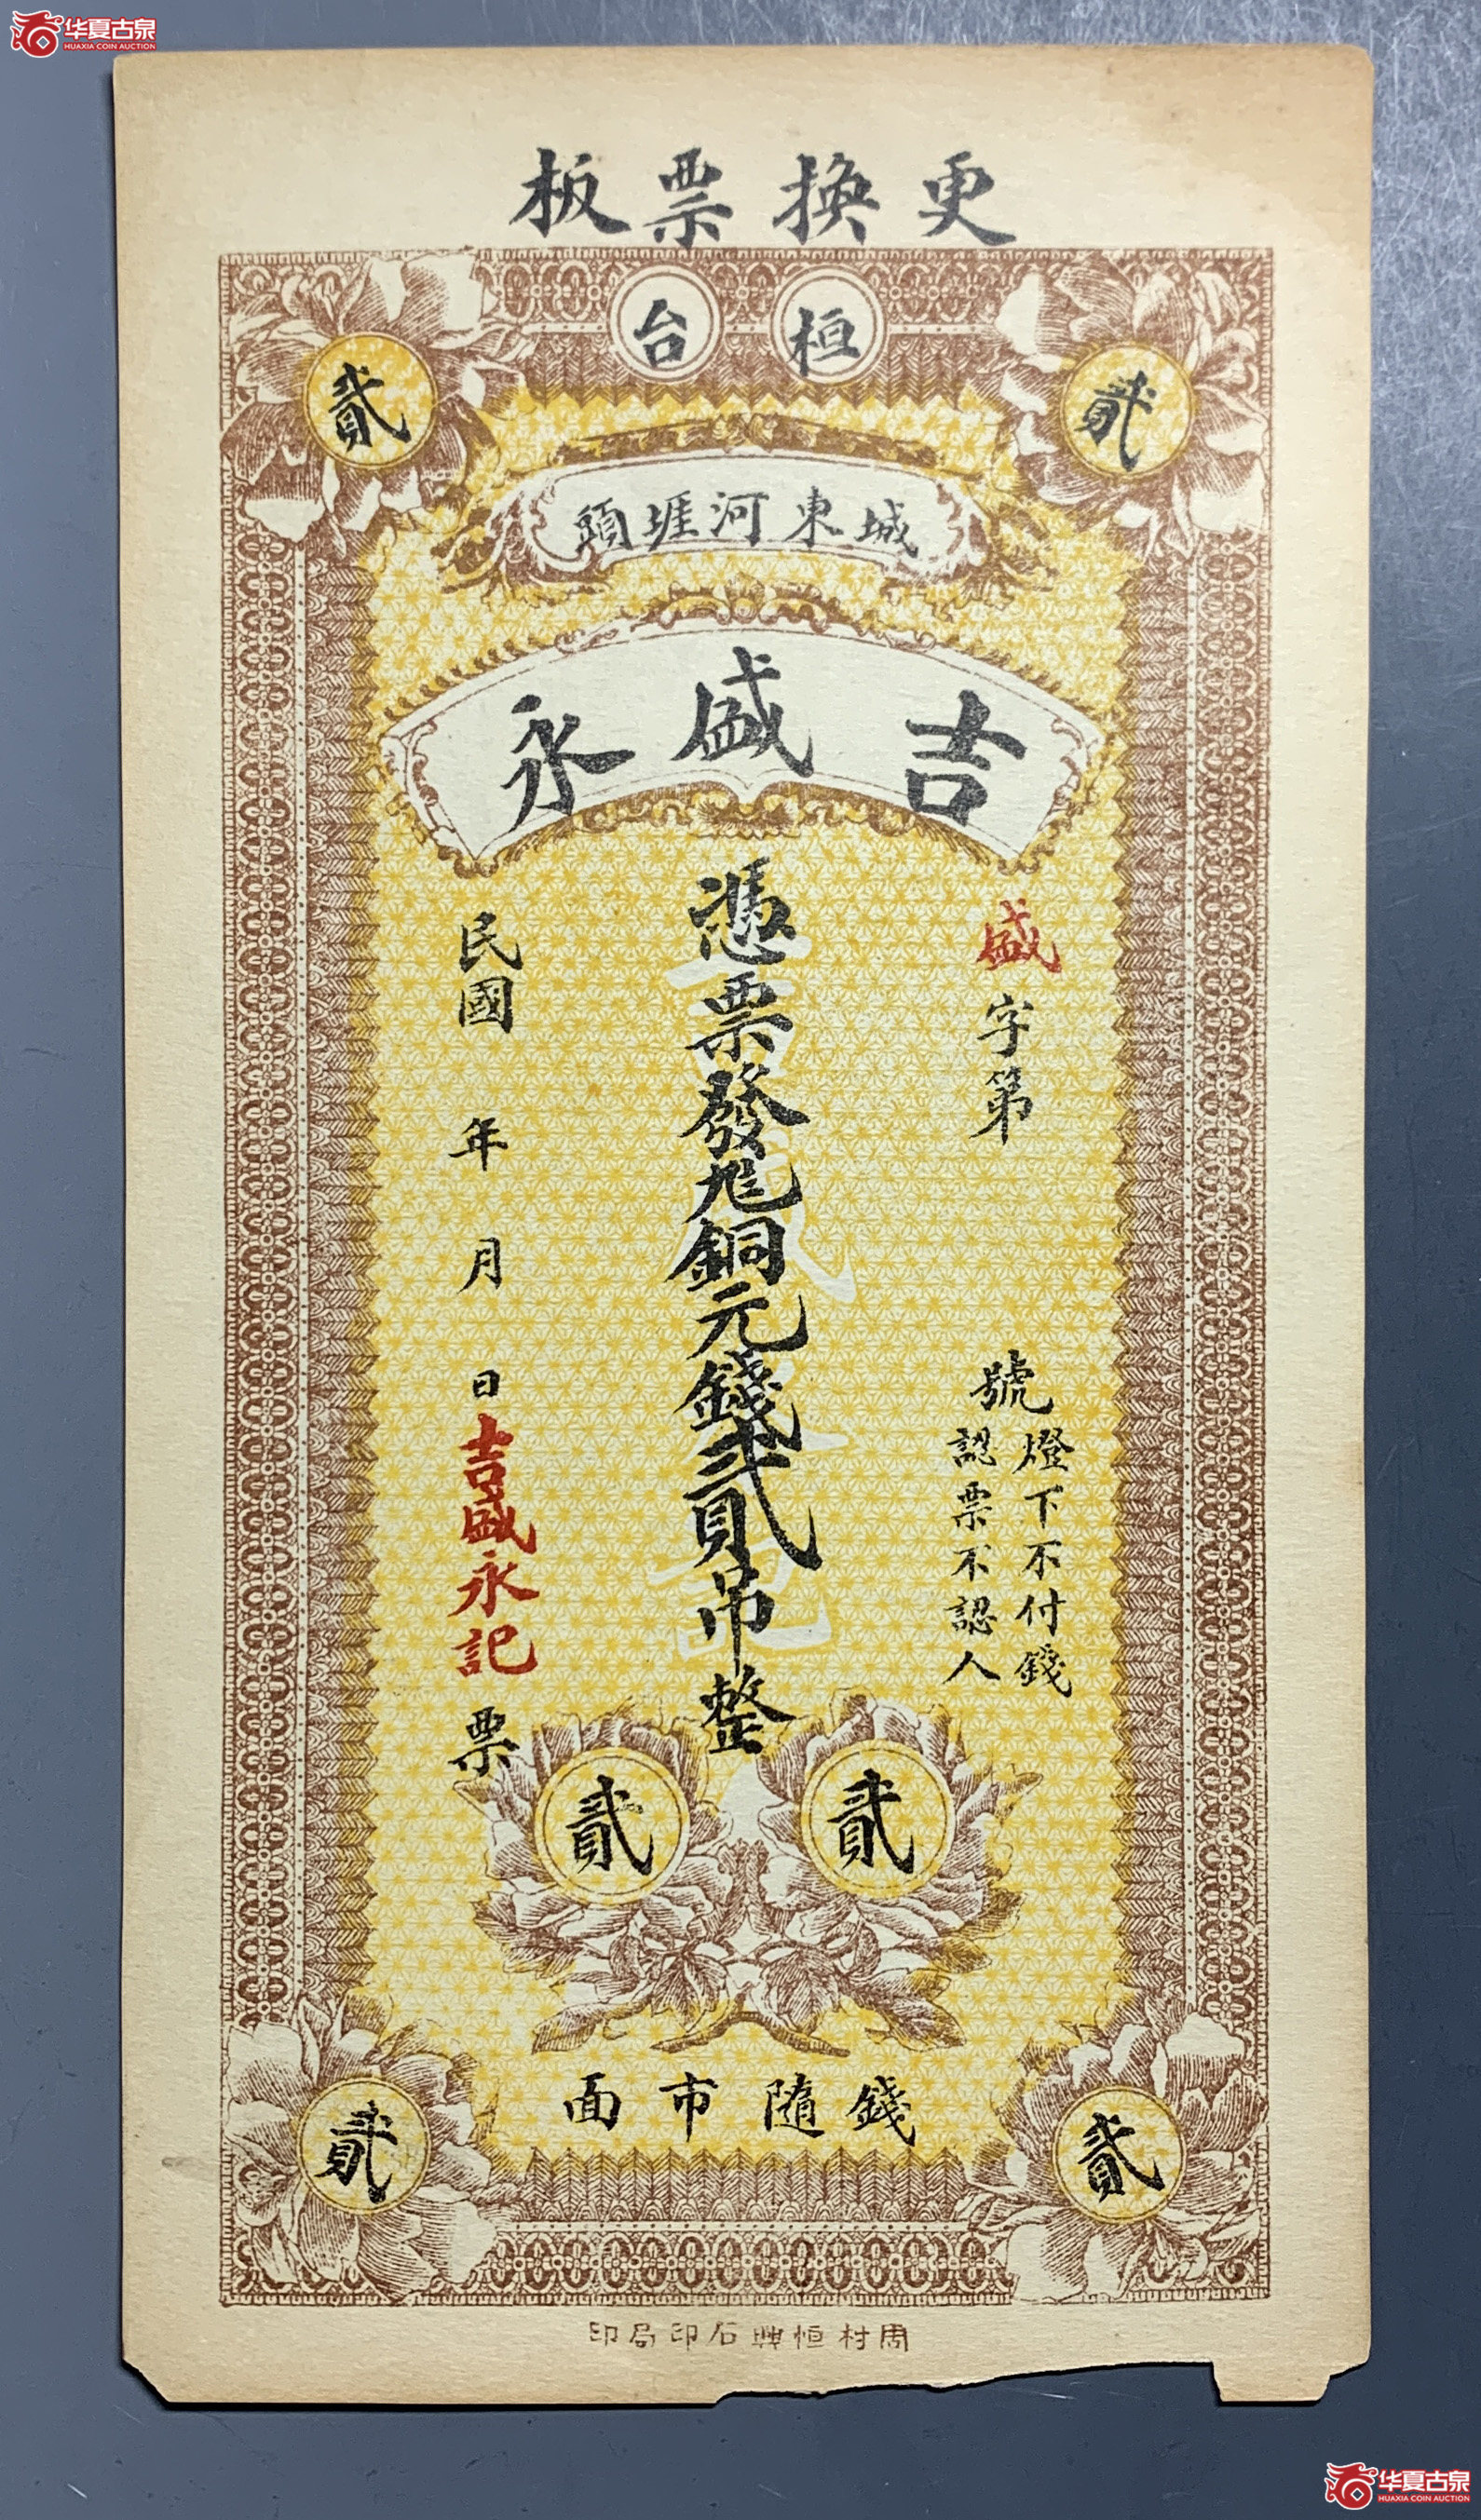 华夏古泉
HUAXIA COIN AUCTION
更換票板
桓台
貳
貳
城東河堐頭
吉盛永
盛字第
號
燈下不付錢
認票不認人
憑票發兌銅元錢貳吊整
民國 年 月 日吉盛永記票
貳
貳
錢隨市面
貳
貳
周村恒興石印局印
华夏古泉
HUAXIA COIN AUCTION